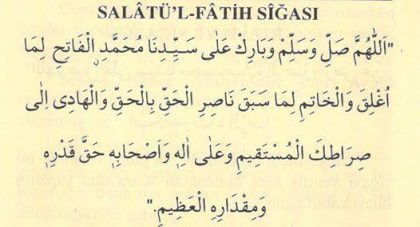 SALÂTÜ'L-FÂTİH SÎĞASI
"اَللّٰهُمَّ صَلِّ وَسَلِّمْ وَبَارِكْ عَلٰى سَيِّدِنَا مُحَمَّدٍ الْفَاتِحِ لِمَا
اُغْلِقَ وَالْخَاتِمِ لِمَا سَبَقَ نَاصِرِ الْحَقِّ بِالْحَقِّ وَالْهَادِى اِلٰى
صِرَاطِكَ الْمُسْتَقِيمِ وَعَلٰى اٰلِهِ وَاَصْحَابِهِ حَقَّ قَدْرِهِ
وَمِقْدَارِهِ الْعَظِيمِ."